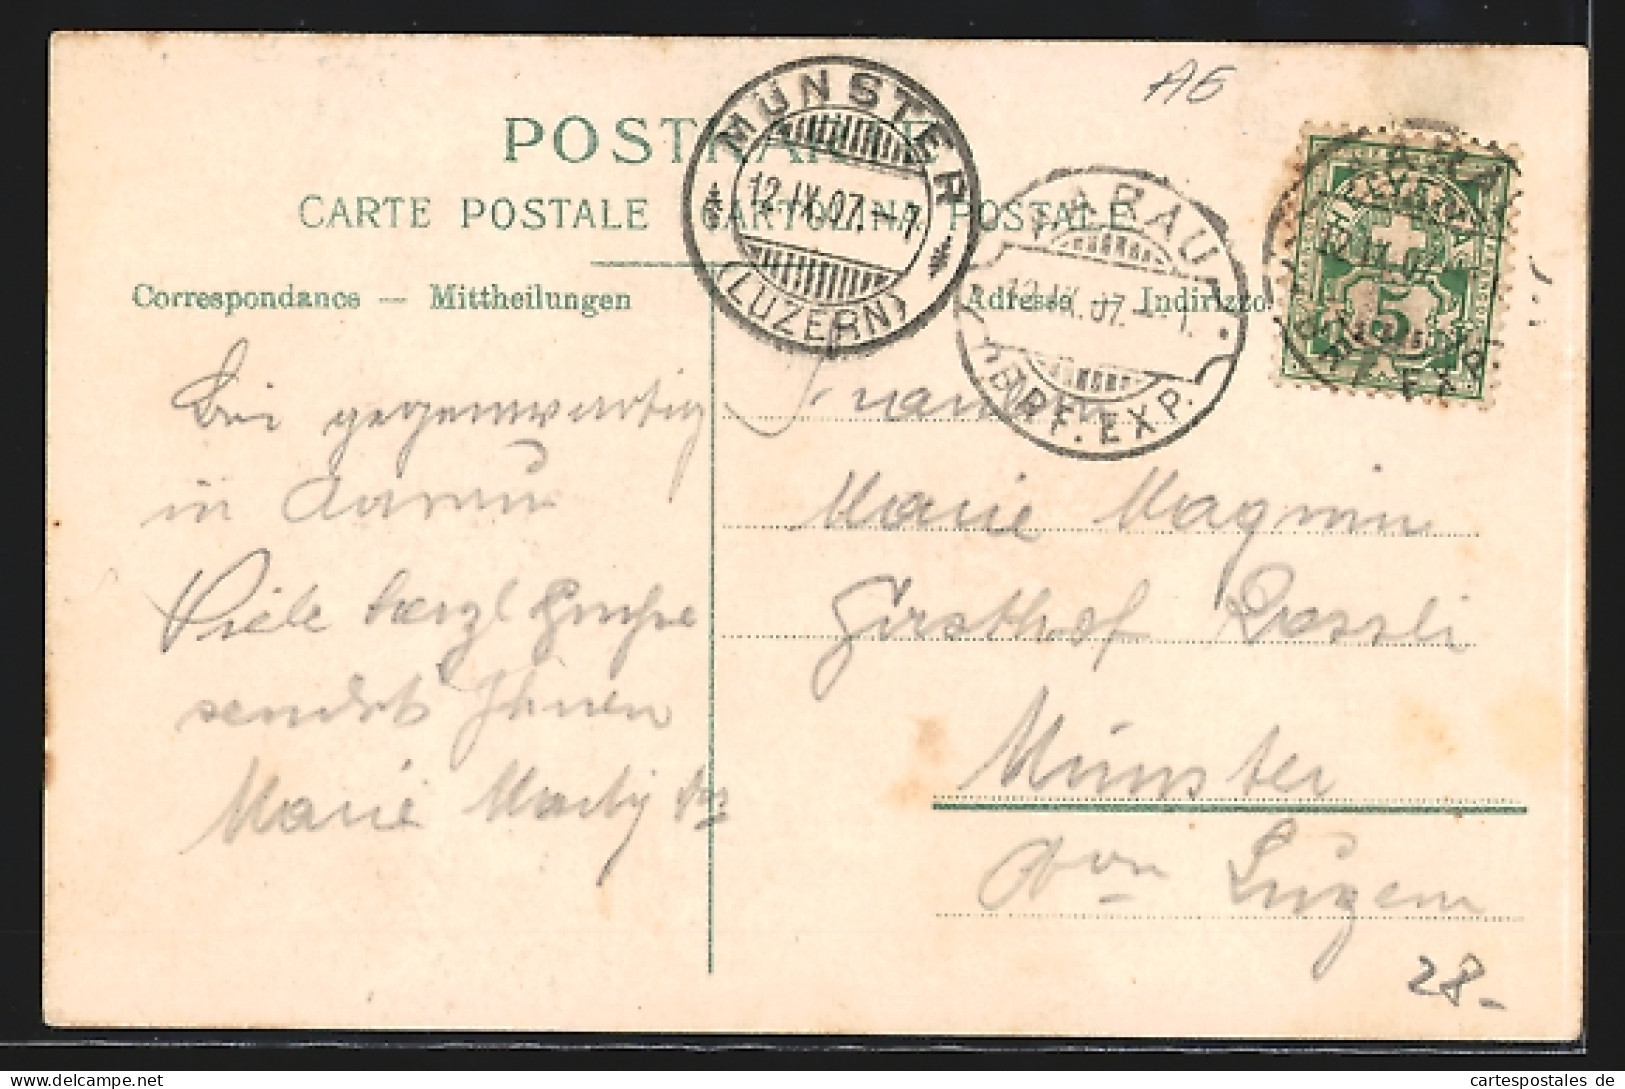 AG
POSTKARTE
CARTE POSTALE CARTOLINA POSTALE
Correspondance — Mittheilungen
Adresse — Indirizzo
MÜNSTER
12.IX.07.–7
(LUZERN)
AARAU
12.IX.07.
BRF. EXP.
HELVETIA
12.IX.07
5
BRF. EXP.
Bin gegenwärtig
in Aarau
Viele herzl Grüsse
sendet Ihnen
Marie
Marie Magnin
Hirsthof Rössli
Münster
Ktn Luzern
28-
cartespostales de